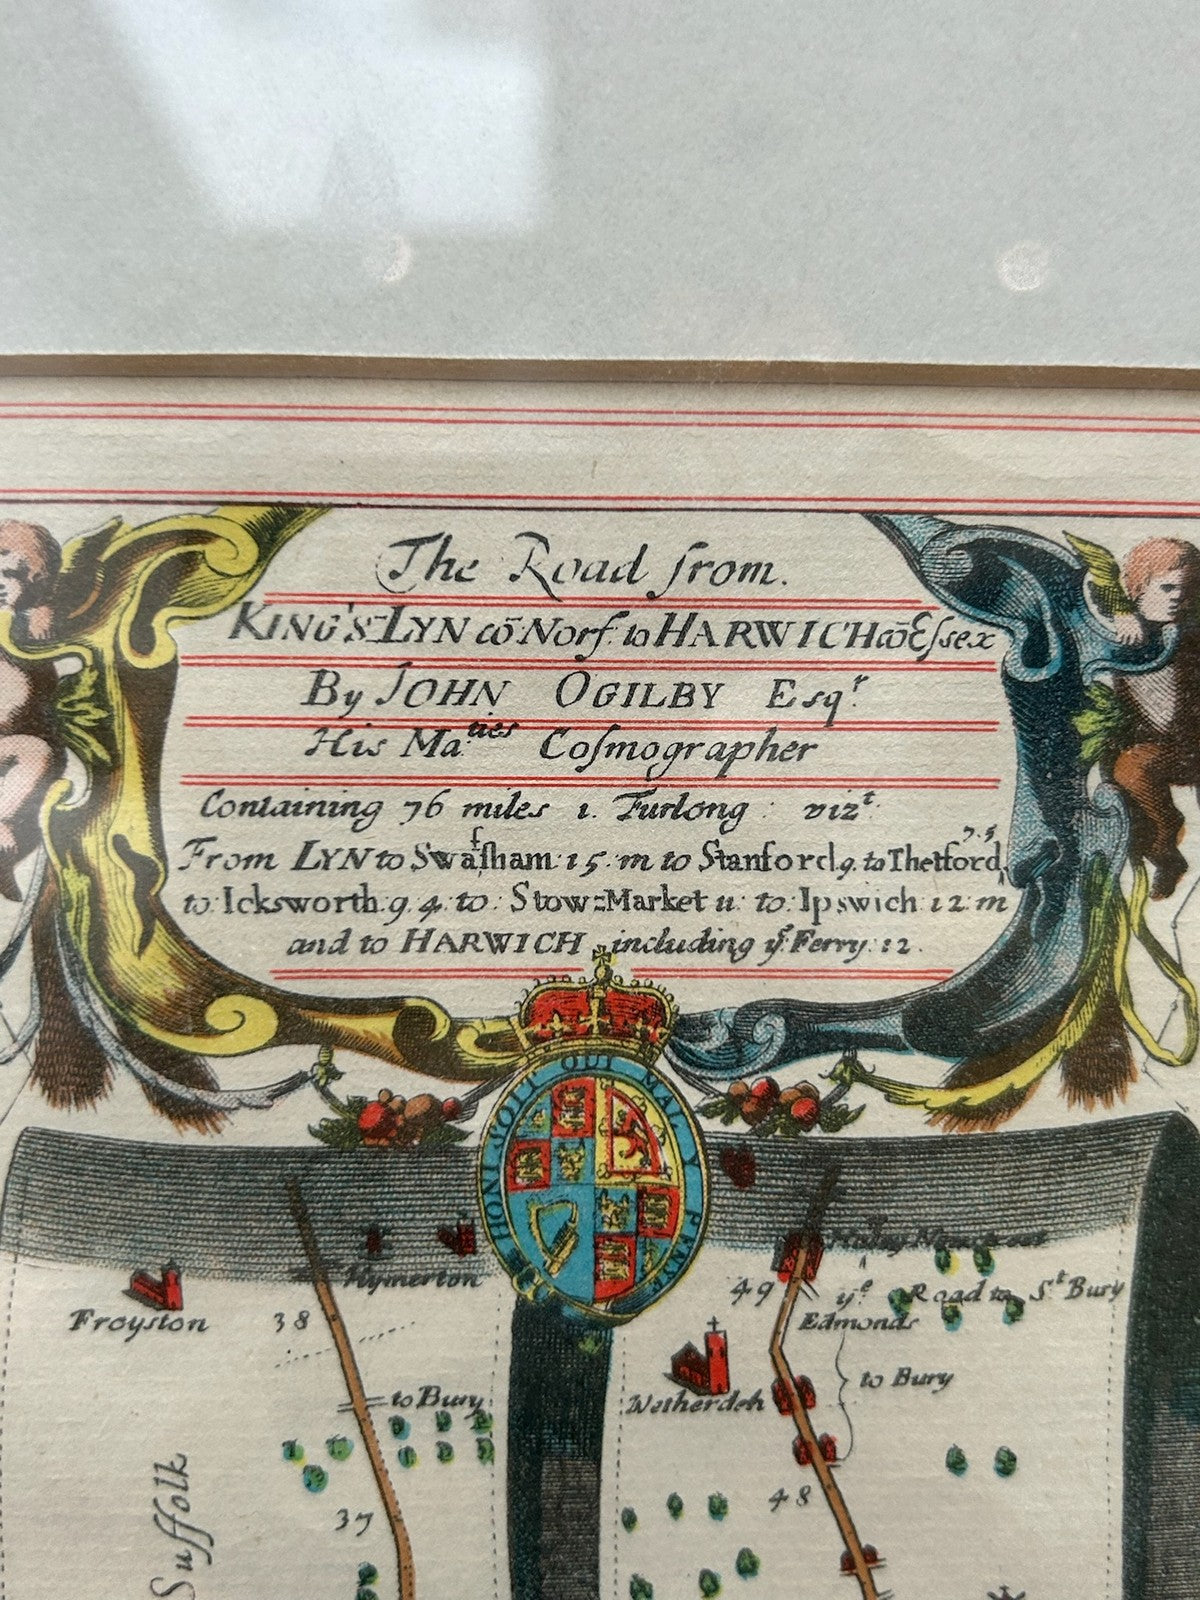 The Road from.
KING'S-LYN cō Norf. to HARWICH cō Eſsex
By JOHN OGILBY Esqʳ.
His Ma.ᵗⁱᵉˢ Coſmographer
Containing 76 miles 1. Furlong : vizᵗ.
From LYN to Swafſham: 15: m to Stanford 9. to Thetford 7.5
to: Icksworth: 9.4. to: Stow=Market 11: to: Ipswich: 12: m
and to HARWICH including yᵉ Ferry: 12.
HONI SOIT QUI MAL Y PENSE
Hymerton
Froyston
38
to Bury
37
Suffolk
49
yᵉ Road to Sᵗ Bury
Edmonds
to Bury
Wetherden
48